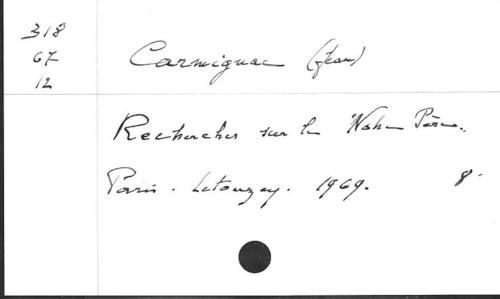 318
67
12
Carmignac (Jean)
Recherches sur le "Notre Père".
Paris. Letouzey. 1969. 8°